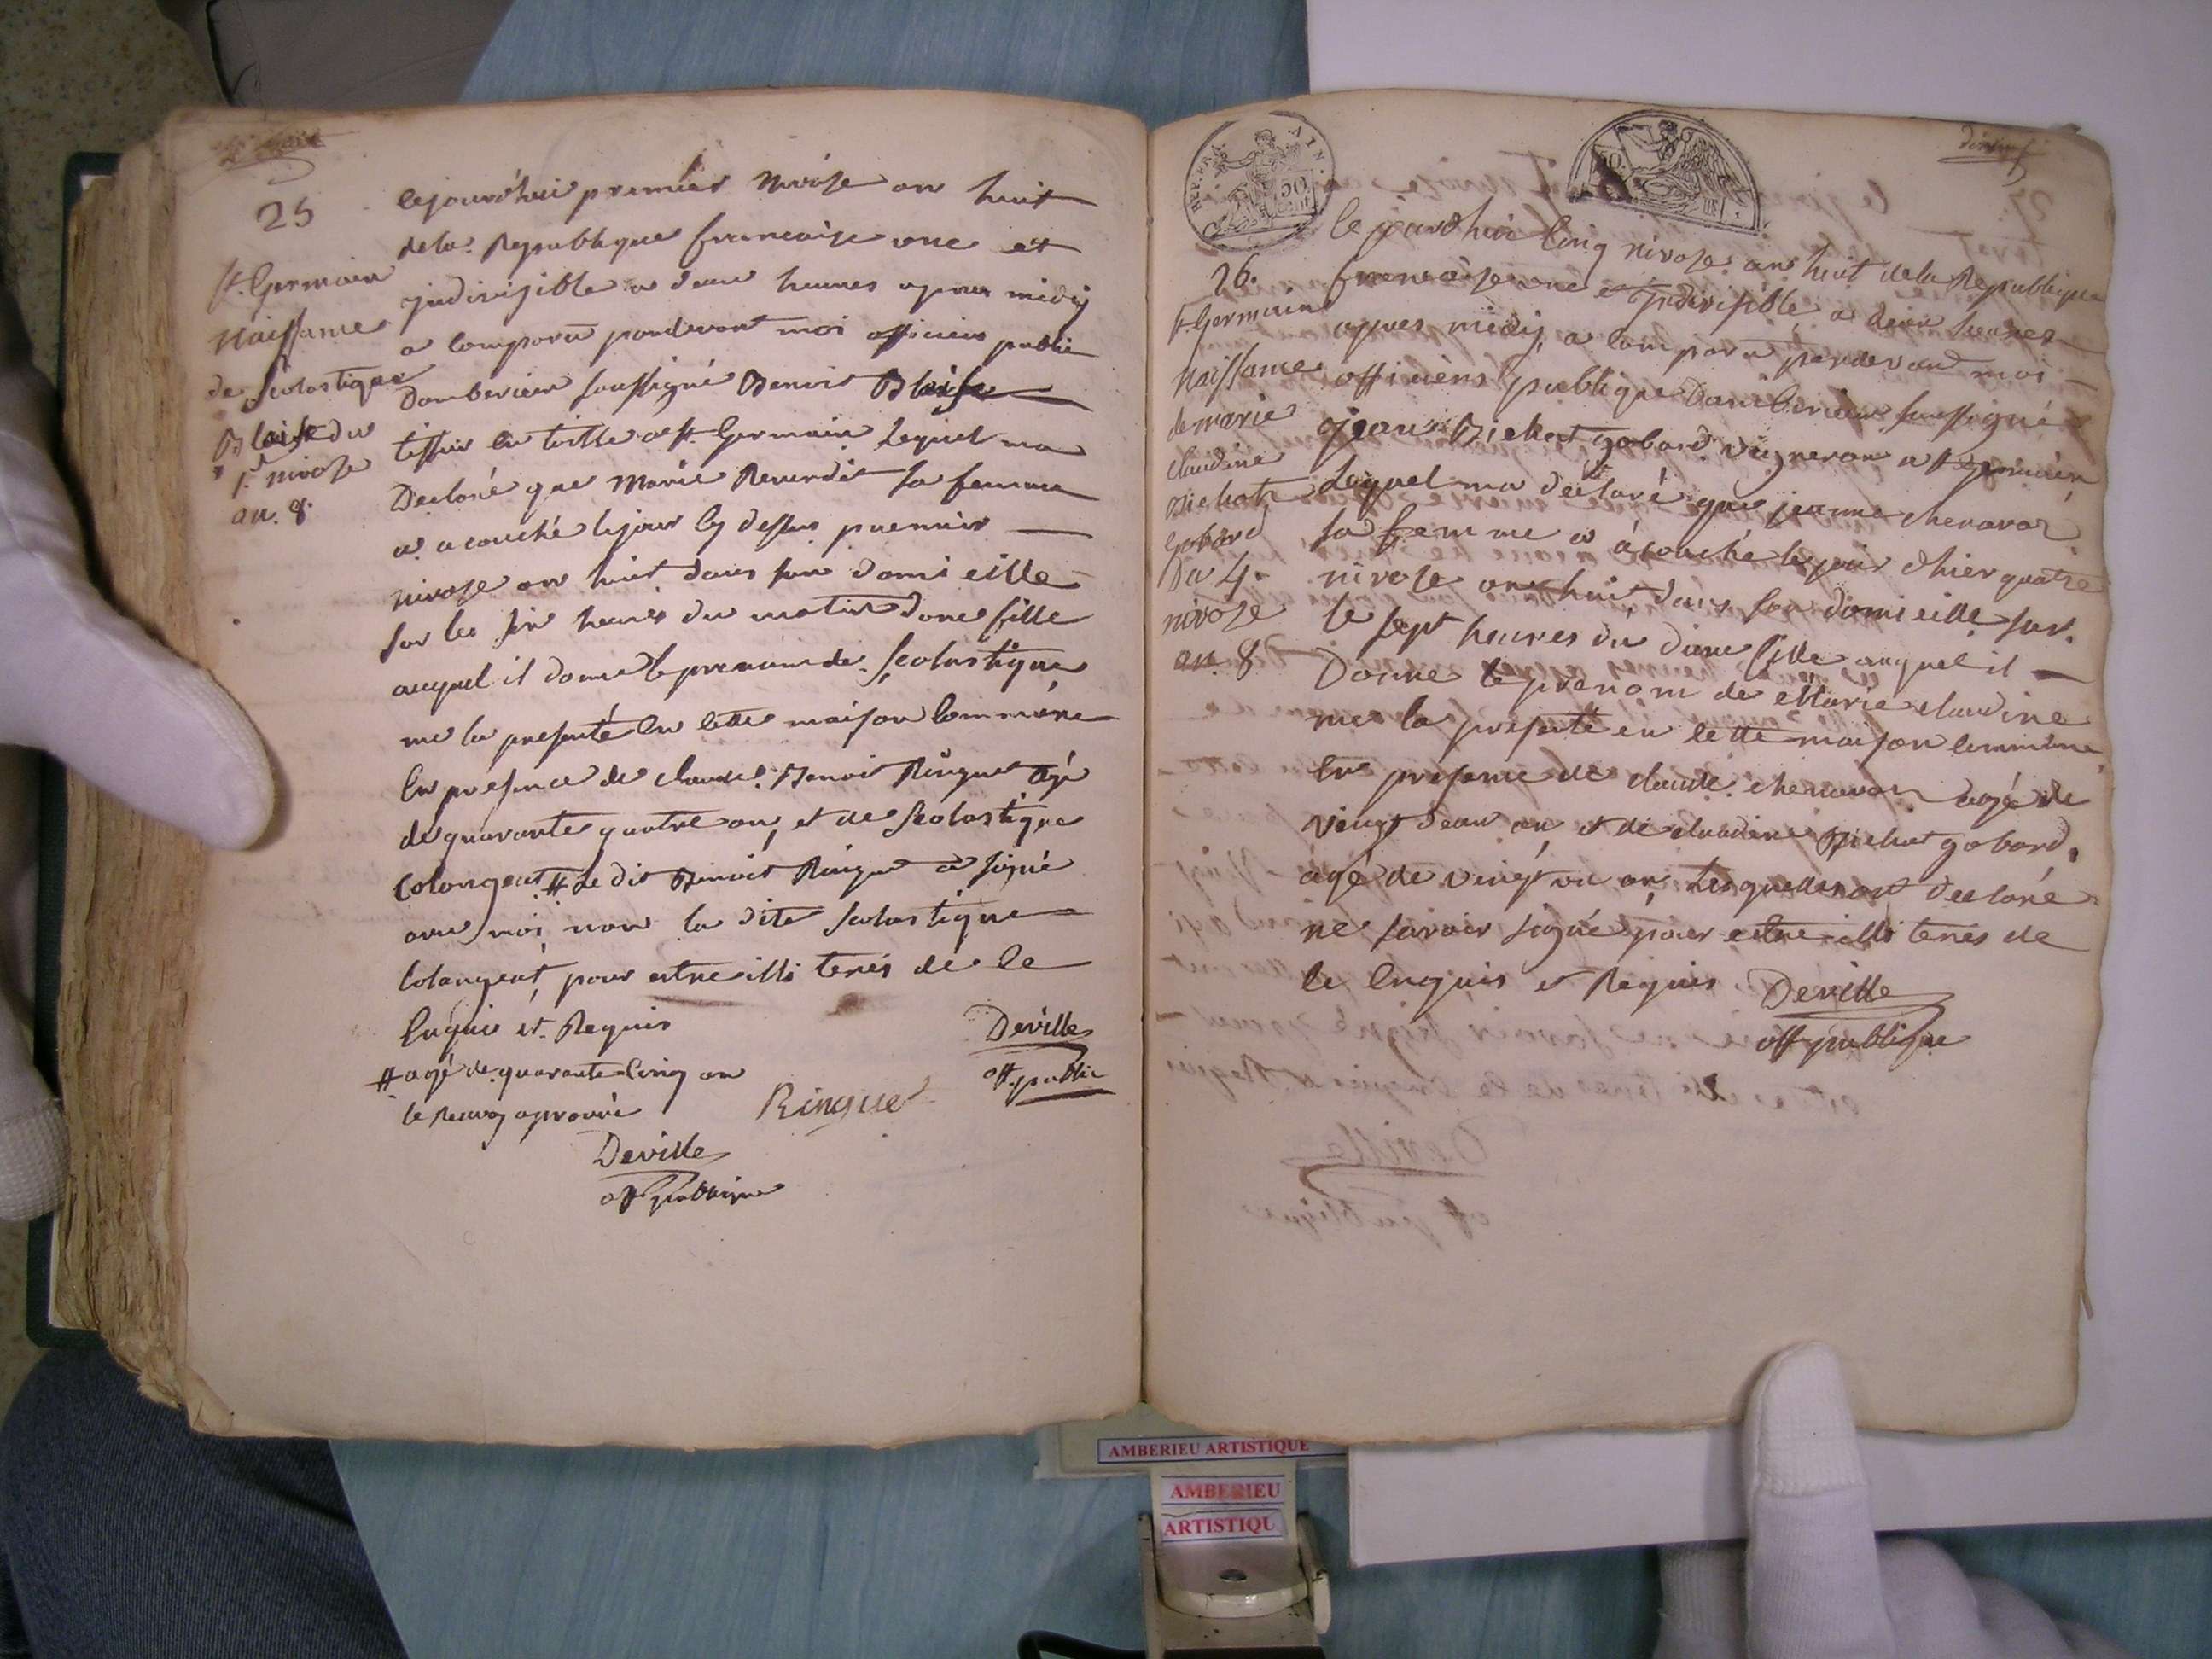 25
St. Germain
Naissance
de Scolastique
Blaise du
1r. nivose
an. 8.
Cejourd'huit premier Nivose an huit
de la Republique francaise une et
indivisible a deux heures apres midy
a comparu pardevant moi officier public
Damberieu soussigné Benoit Blaise
tissier en toille a St. Germain Lequel ma
Declaré que Marie sa femme
a acouché le jour cy dessus premier
nivose an huit dans son domicille
sur les six heures du matin dune fille
auquel il donne le prenom de Scolastique
me la presenté en cette maison commune
En presence de claude Benoit Ringuet agé
de quarante quatre an, et de Scolastique
Colongeat # Le dit Benoit Ringuet a signé
avec moi non la dite Scolastique
Colangeat, pour estre illi terés de ce
Enquis et Requis
# agé de quarante cinq an
le Renvoy aprouvé
Ringuet
Deville
off. public
Deville
off publique
REP. FRA.
AIN.
50
CENT
26.
St. Germain
Naissance
de marie
claudine
Bichat
gobard
Du 4
nivose
an 8
Ce jourdhui Cinq nivose an huit de la Republique
francaise une et Indivisible a deux heures
apres midy, a comparu pardevand moi
officiers publique Damberieu soussigné
jean Bichat gobard vigneron a St germain
Lequel ma déclaré que jeanne chenavaz
sa femme a acouché le jour dhier quatre
nivose an huit, dans son domicille sur
le sept heures du dune fille auquel il
Donne le prenom de Marie claudine
me la presenté en cette maison commune
En presence de claude chenavaz agé de
vingt deux an, et de claudine Bichat gobard,
agé de vingt un an, Lesquelles ont declaré
ne savoir signé pour estre illi terés de
ce Enquis et Requis
Deville
off publique
AMBERIEU ARTISTIQUE
AMBERIEU
ARTISTIQU